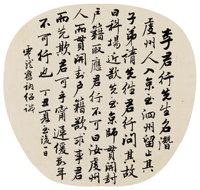 李君行先生名潛
虔州人入京至泗州留止其
子弟請先往君行問其故
曰科場近欲先至京師貫開封
戶籍取應君行不可曰汝虔州
人而貫開封戶籍欲求事君
而先欺君可乎寧遲緩數年
不可行也 丁丑夏